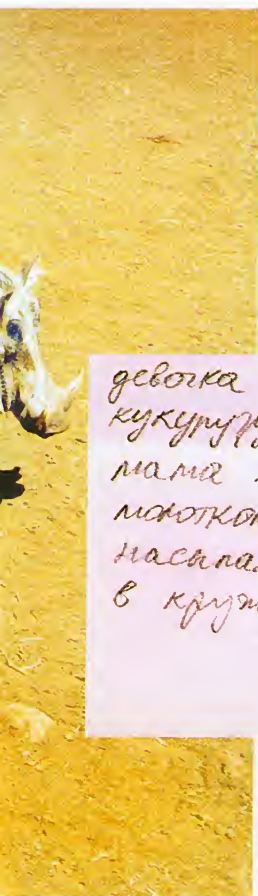 девочка
кукуруз
мама
молотком
насыпа
в круж